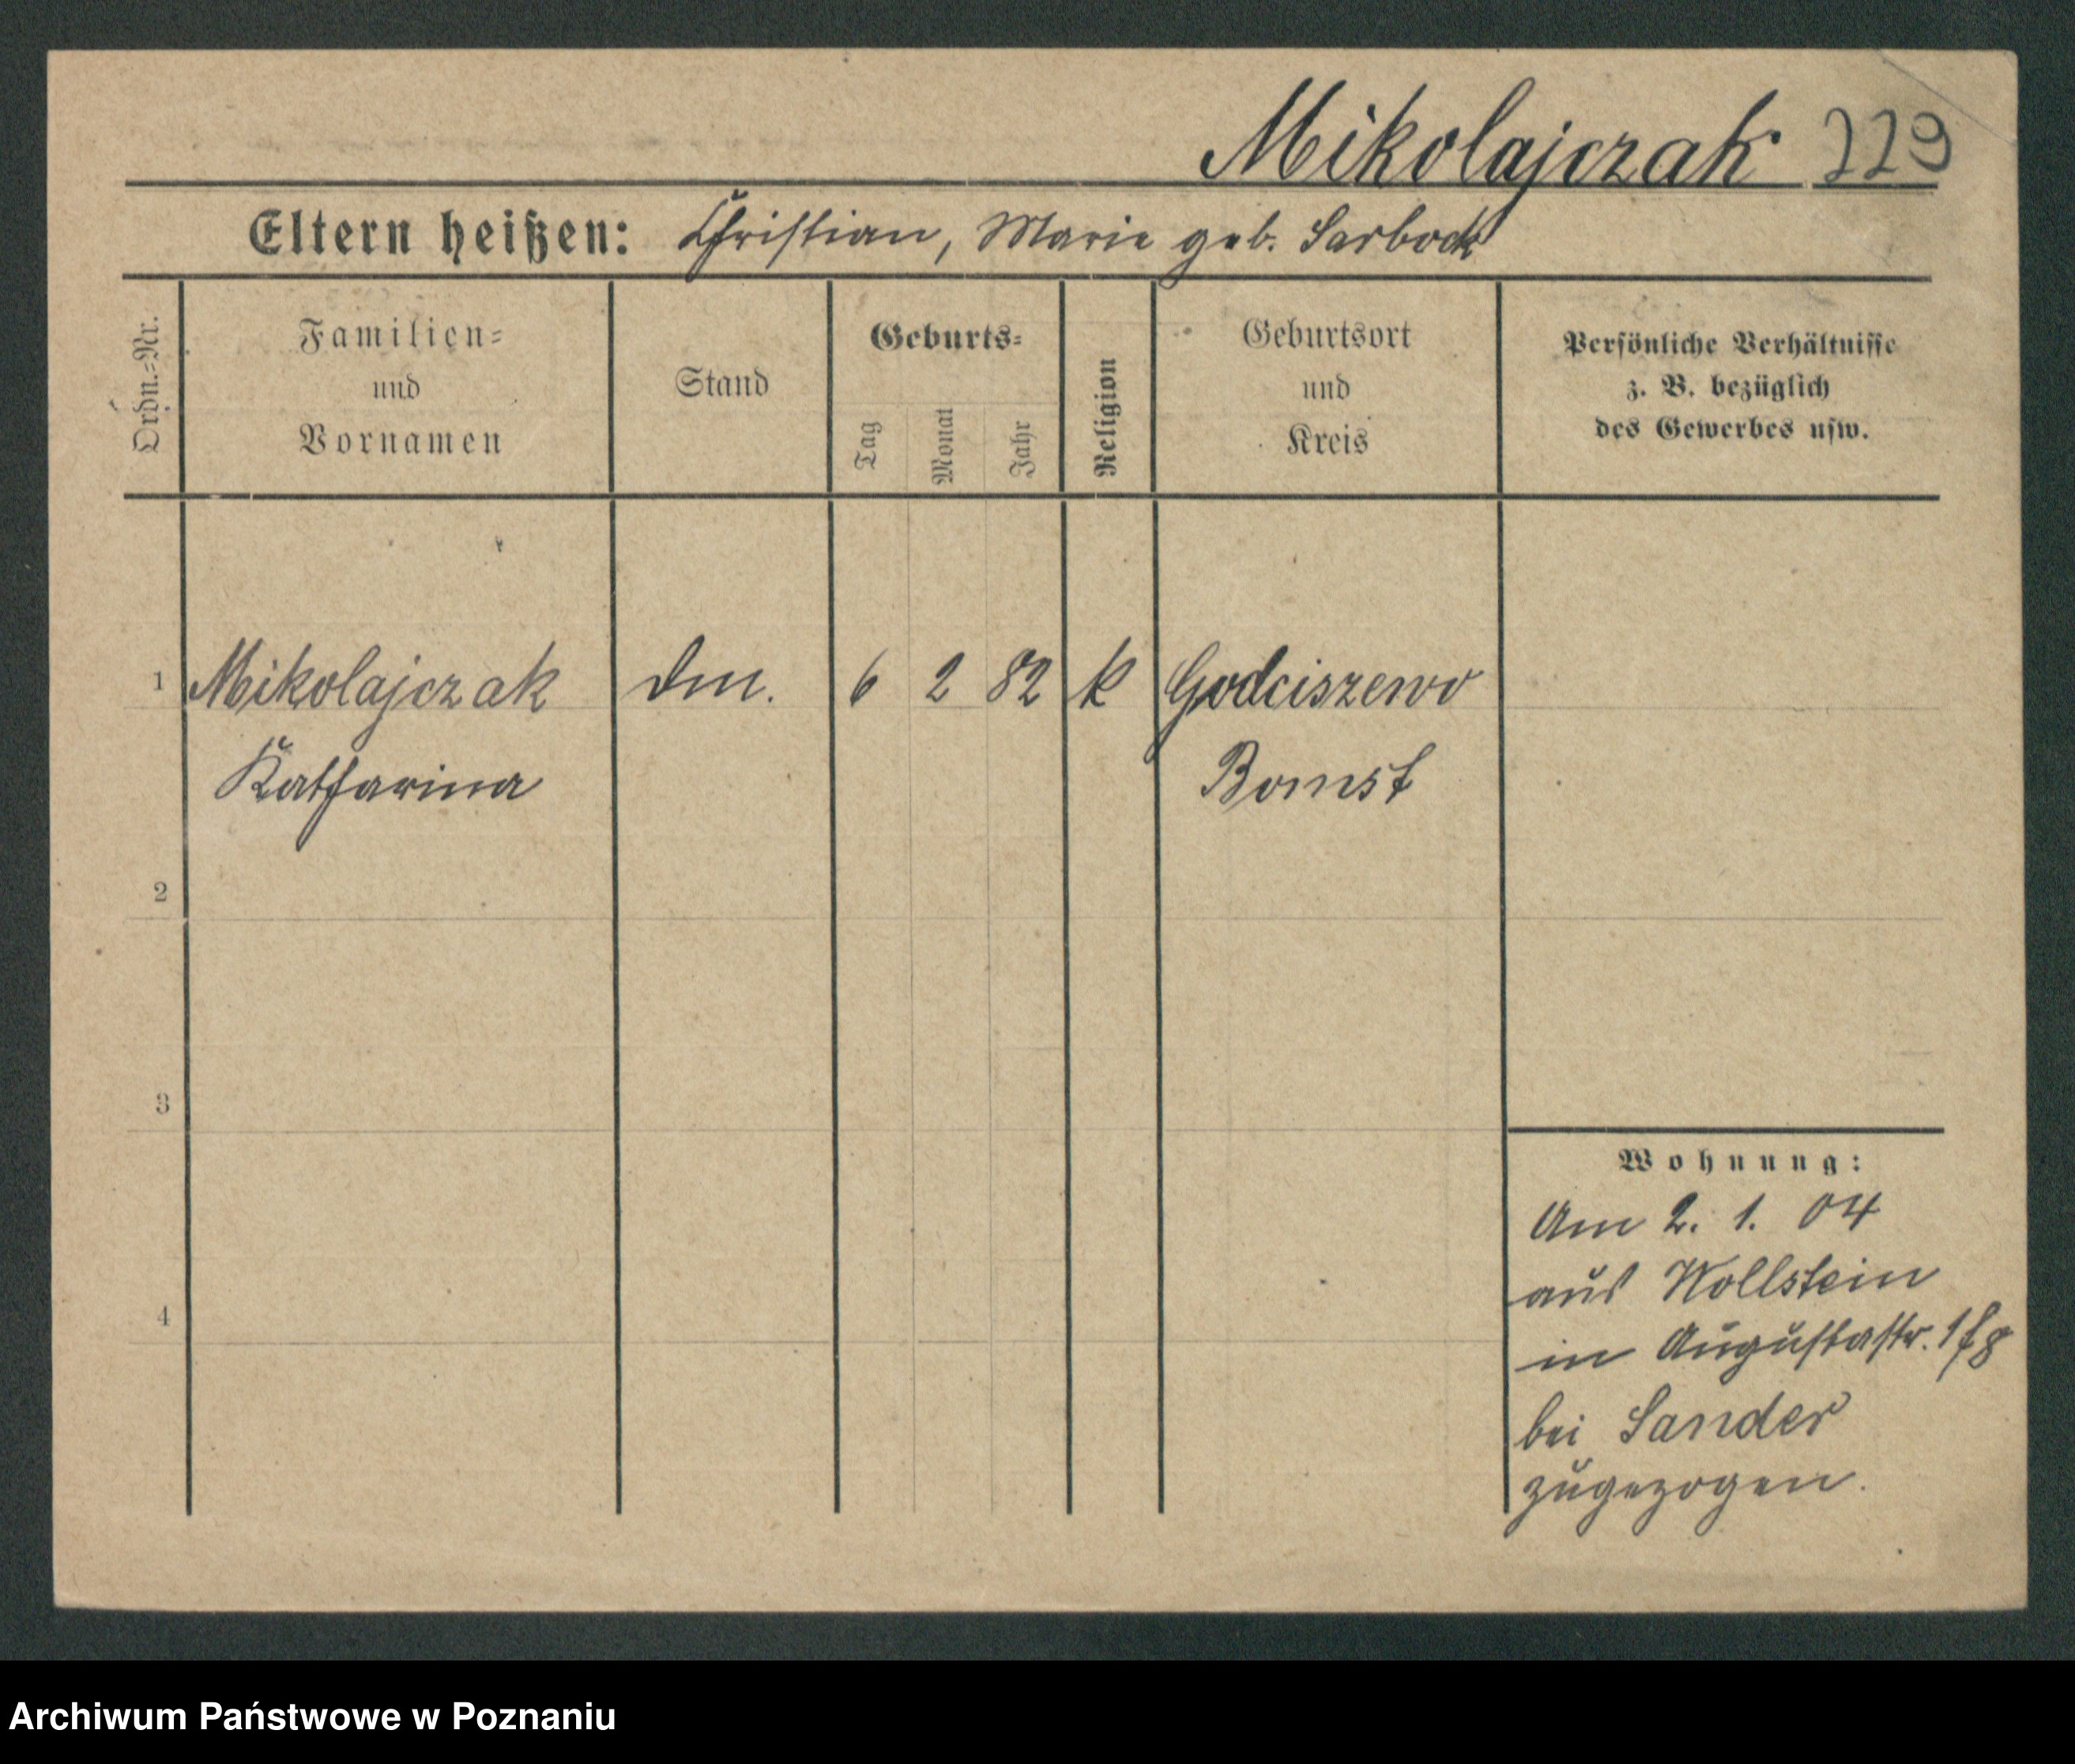 Mikolajczak 229
Eltern heißen: Christian, Marie geb. Sarbock
Ordn.-Nr.
Familien-
und
Vornamen
Stand
Geburts-
Tag
Monat
Jahr
Religion
Geburtsort
und
Kreis
Persönliche Verhältnisse
z. B. bezüglich
des Gewerbes usw.
1 Mikolajczak Dm. 6 2 82 k Godciszewo
Katharina Bomst
2
3
4
Wohnung:
Am 2. 1. 04
aus Wollstein
in Augustastr.
bei Sander
zugezogen.
Archiwum Państwowe w Poznaniu